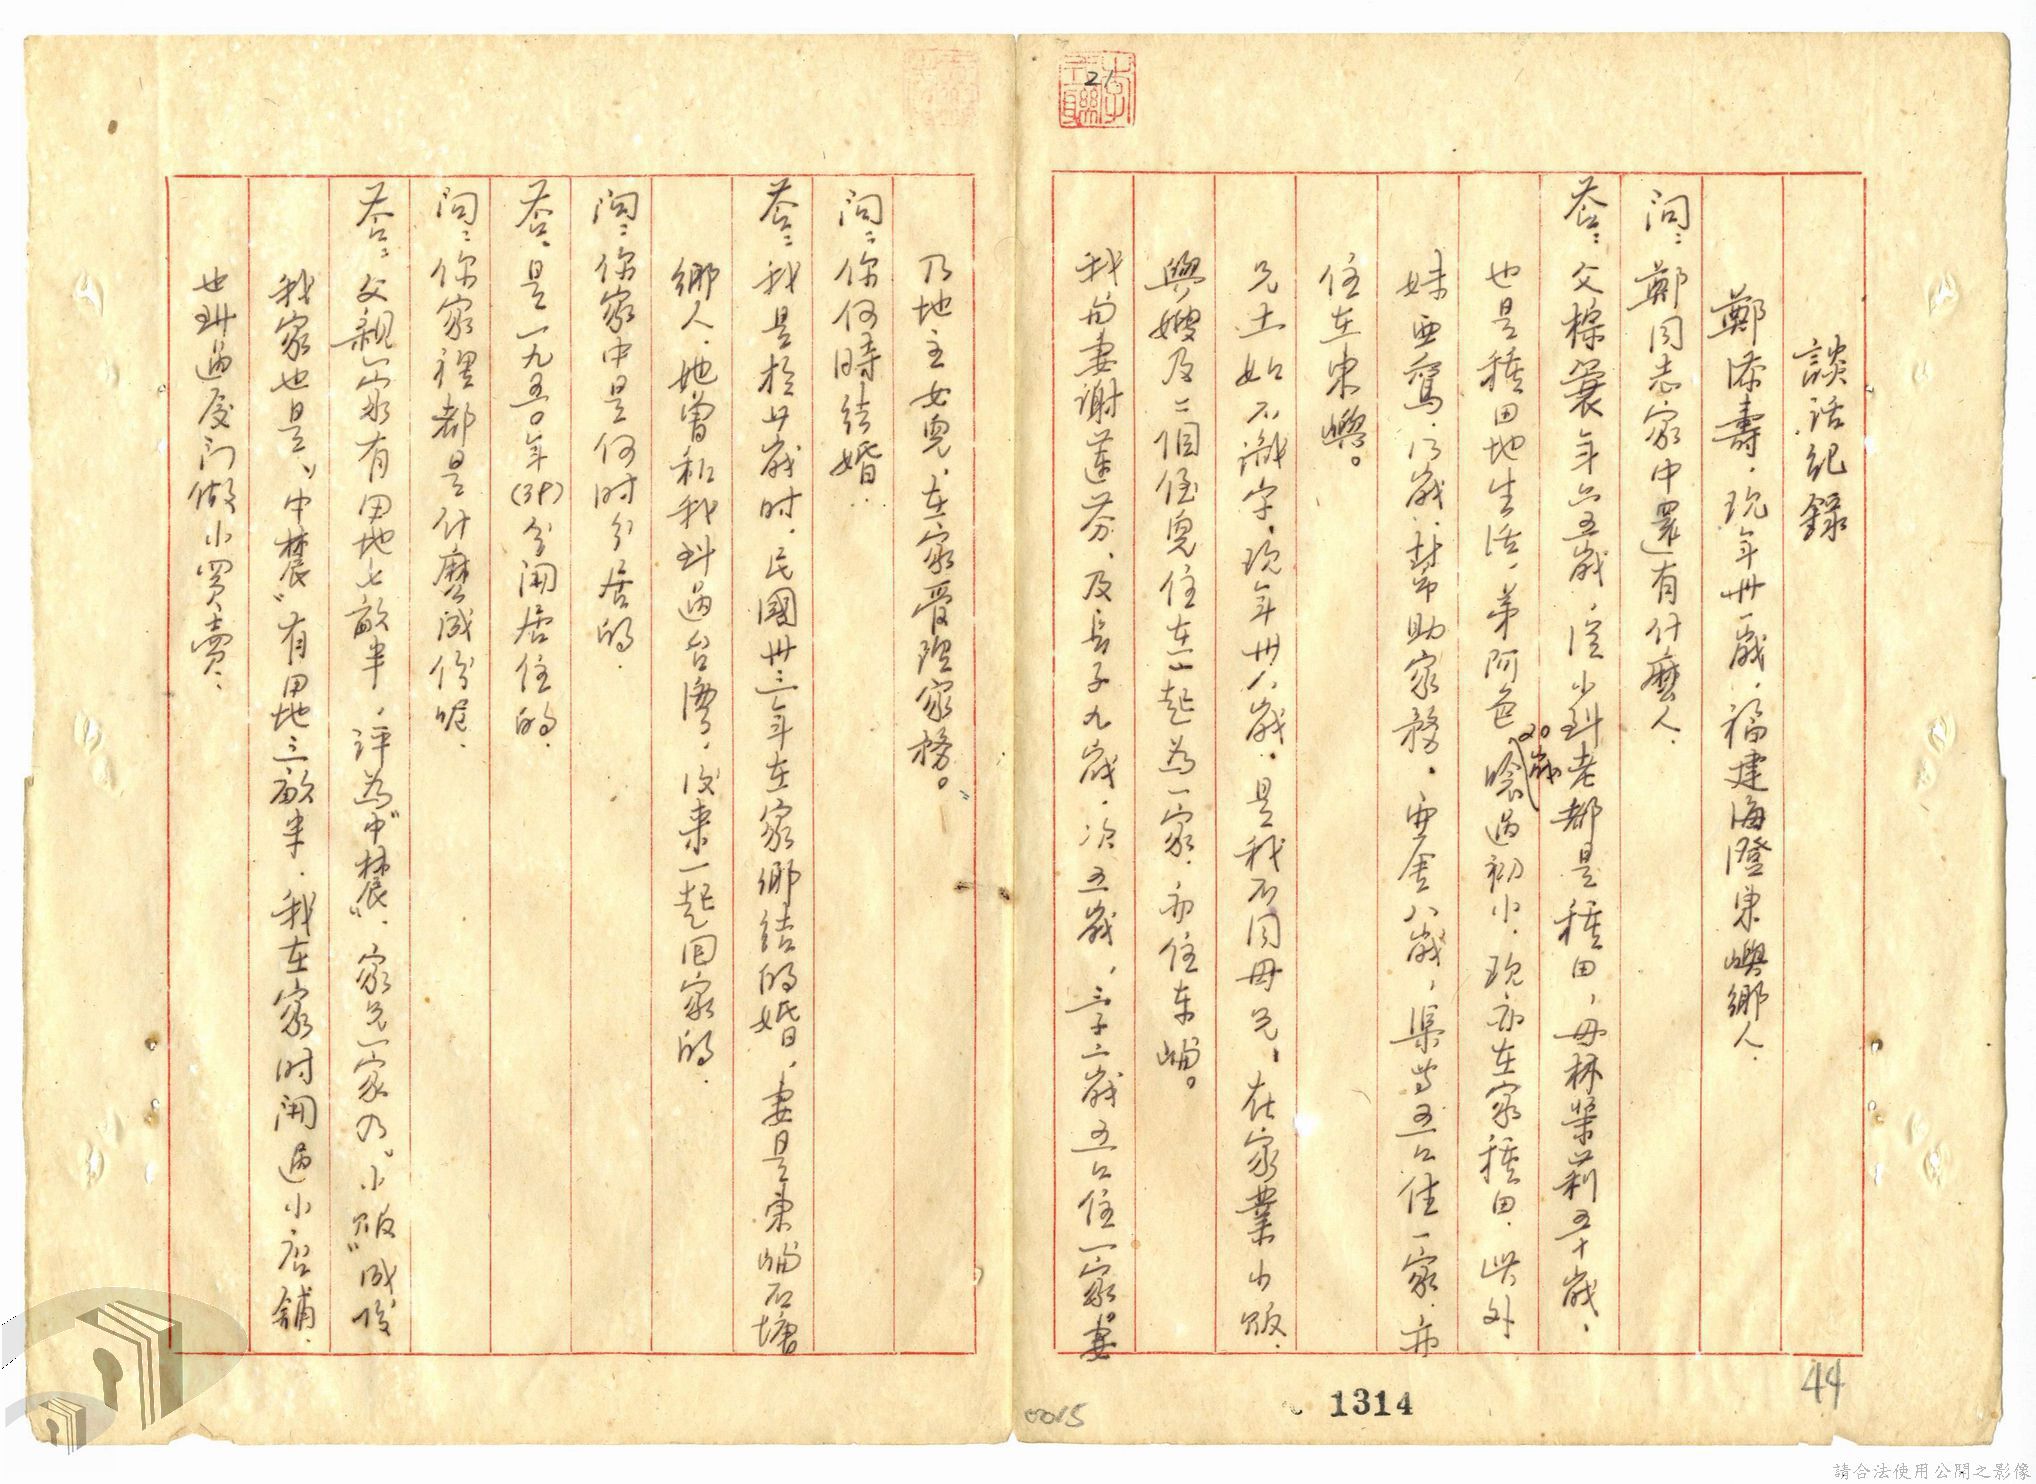 談話紀錄
鄭添壽．現年卅一歲．福建海澄東嶼鄉人．
問：鄭同志家中還有什麼人．
答：父樑 年六五歲，從小到老都是種田，母林 莉五十歲，
也是種田地生活，弟阿 20歲 過初小．現亦在家種田．此外
妹亞鴛．歲 幫助家務． 八歲， 等五口住一家．亦
住在東嶼。
兄土 不識字，現年卅八歲．是我不同母兄，在家業小販．
與嫂及二個侄兒住在一起為一家．亦住東嶼。
我與妻謝蓮芬．及長子九歲．次五歲，三子二歲五口住一家。妻
乃地主女兒．在家管理家務。
問：你何時結婚．
答：我是於廿歲时．民國卅三年在家鄉結的婚．妻是東嶼石塘
鄉人．她曾和我到過台灣，後來一起回家的．
問：你家中是何时分居的．
答．是一九五0年(39)分開居住的．
問：你家裡都是什麼成份呢．
答：父親一家有田地七畝半．評為“中農”．家兄一家乃“小販”成份
我家也是“中農”有田地三畝半．我在家时開過小店舖．
也到過厦门做小買賣．
21
44
1314
0015
請合法使用公開之影像